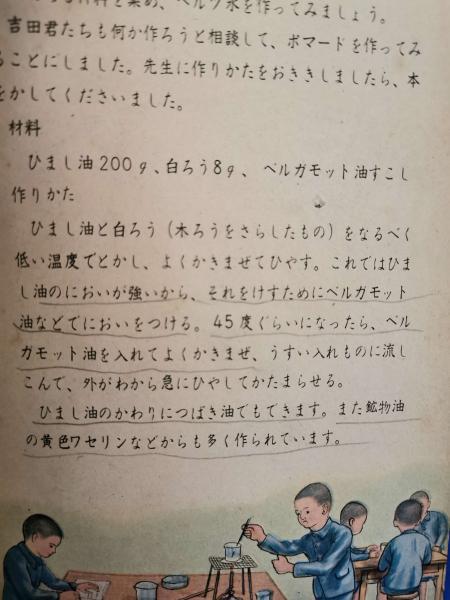 材料を集め、ベルツ水を作ってみましょう。
吉田君たちも何か作ろうと相談して、ポマードを作ってみ
ることにしました。先生に作りかたをおききしましたら、本
をかしてくださいました。
材料
ひまし油200g、白ろう8g、ベルガモット油すこし
作りかた
ひまし油と白ろう（木ろうをさらしたもの）をなるべく
低い温度でとかし、よくかきまぜてひやす。これではひま
し油のにおいが強いから、それをけすためにベルガモット
油などでにおいをつける。45度ぐらいになったら、ベル
ガモット油を入れてよくかきまぜ、うすい入れものに流し
こんで、外がわから急にひやしてかたまらせる。
ひまし油のかわりにつばき油でもできます。また鉱物油
の黄色ワセリンなどからも多く作られています。